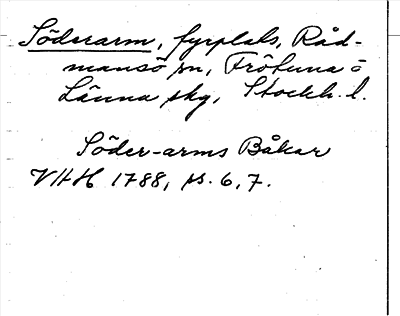 Söderarm, fyrplats, Råd-
mansö sn, Frötuna o
Länna skg, Stockh. l.
Söder-arms Båkar
VHH 1788, s. 6, 7.